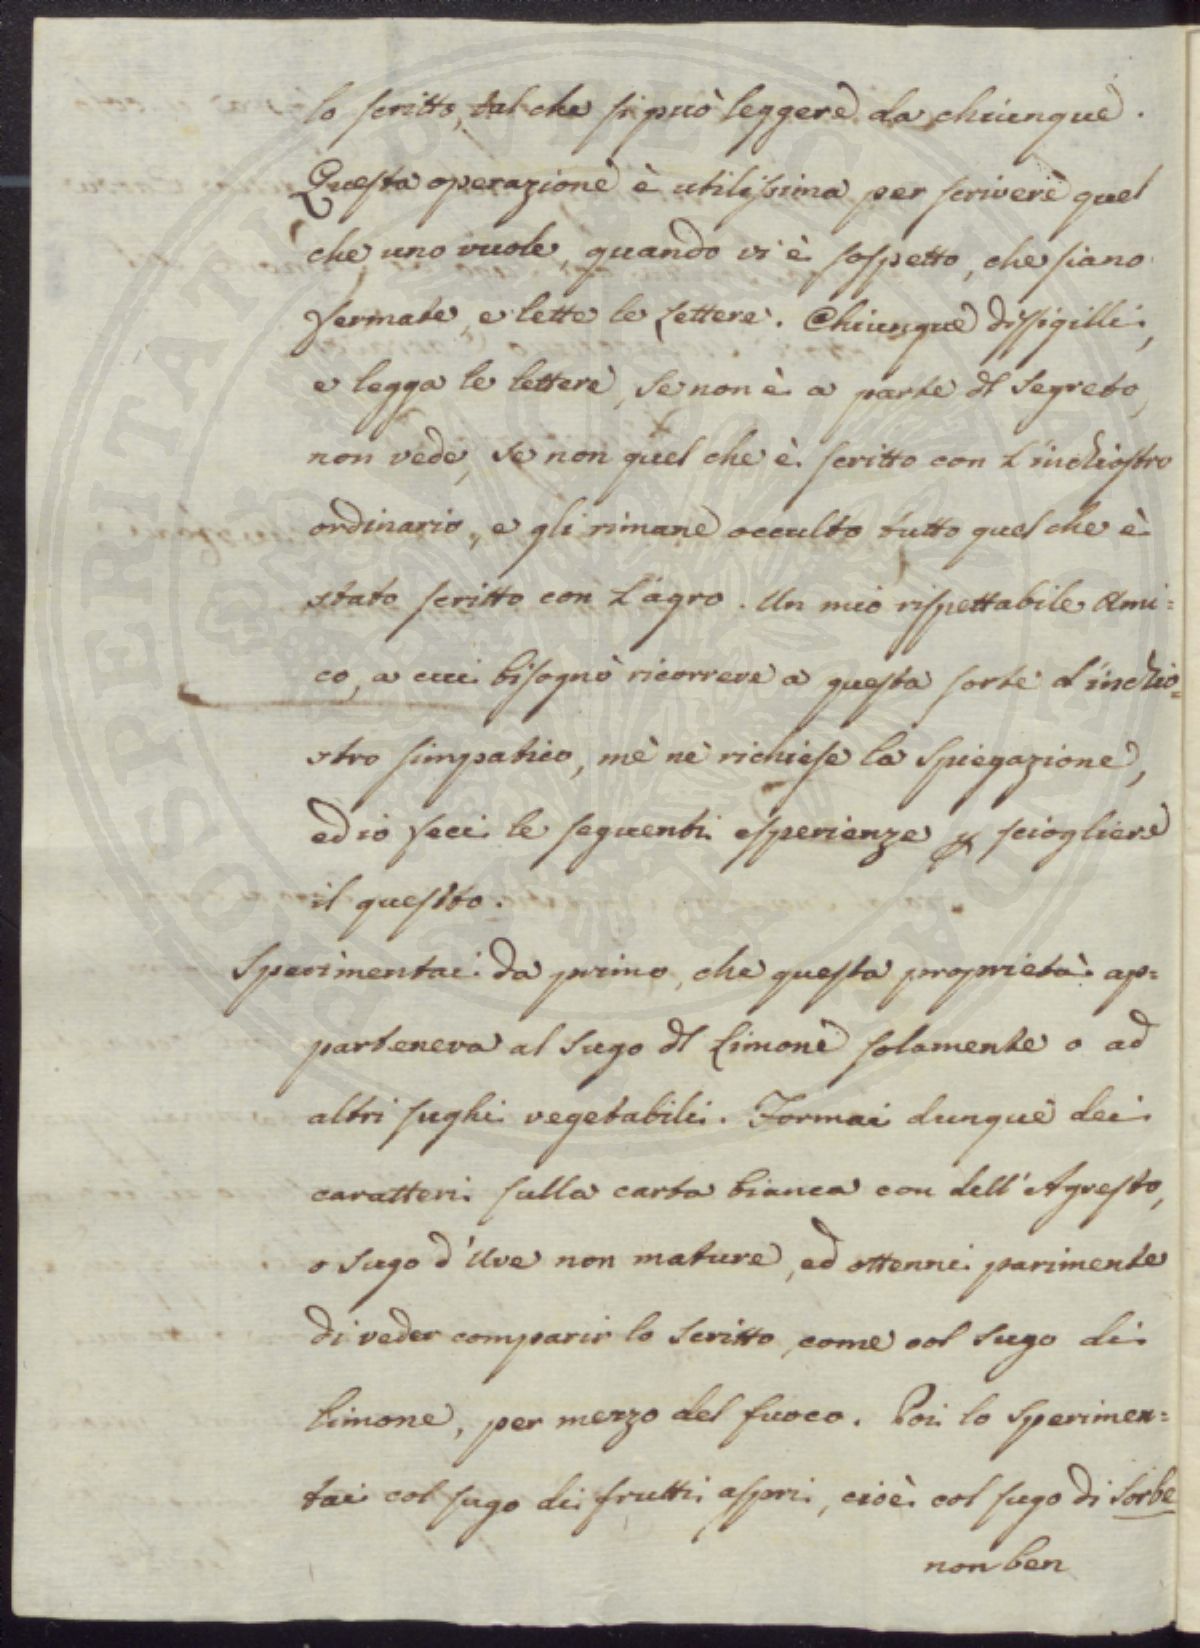 lo scritto, tal che si può leggere da chiunque.
Questa operazione è utilissima per scrivere quel
che uno vuole, quando vi è sospetto, che siano
fermate, e lette le Lettere. Chiunque dissigilli,
e legga le lettere, se non è a parte dl segreto,
non vede, se non quel che è scritto con l'inchiostro
ordinario, e gli rimane occulto tutto quel che è
stato scritto con l'agro. Un mio rispettabile Ami=
co, a cui bisognò ricorrere a questa sorte d'inchio=
stro simpatico, mè ne richiese la spiegazione,
ed io feci le seguenti esperienze p sciogliere
il quesito.
Sperimentai da primo, che questa proprietà ap=
parteneva al sugo dl Limone solamente o ad
altri sughi vegetabili. Formai dunque dei
caratteri sulla carta bianca con dell'Agresto,
o sugo d'Uve non mature, ed ottenni parimente
di veder comparir lo scritto, come col sugo di
limone, per mezzo del fuoco. Poi lo sperimen=
tai col sugo di frutti aspri, cioè col sugo di Sorbe
non ben
PROSPERITATI PVBLICAE AVGENDAE